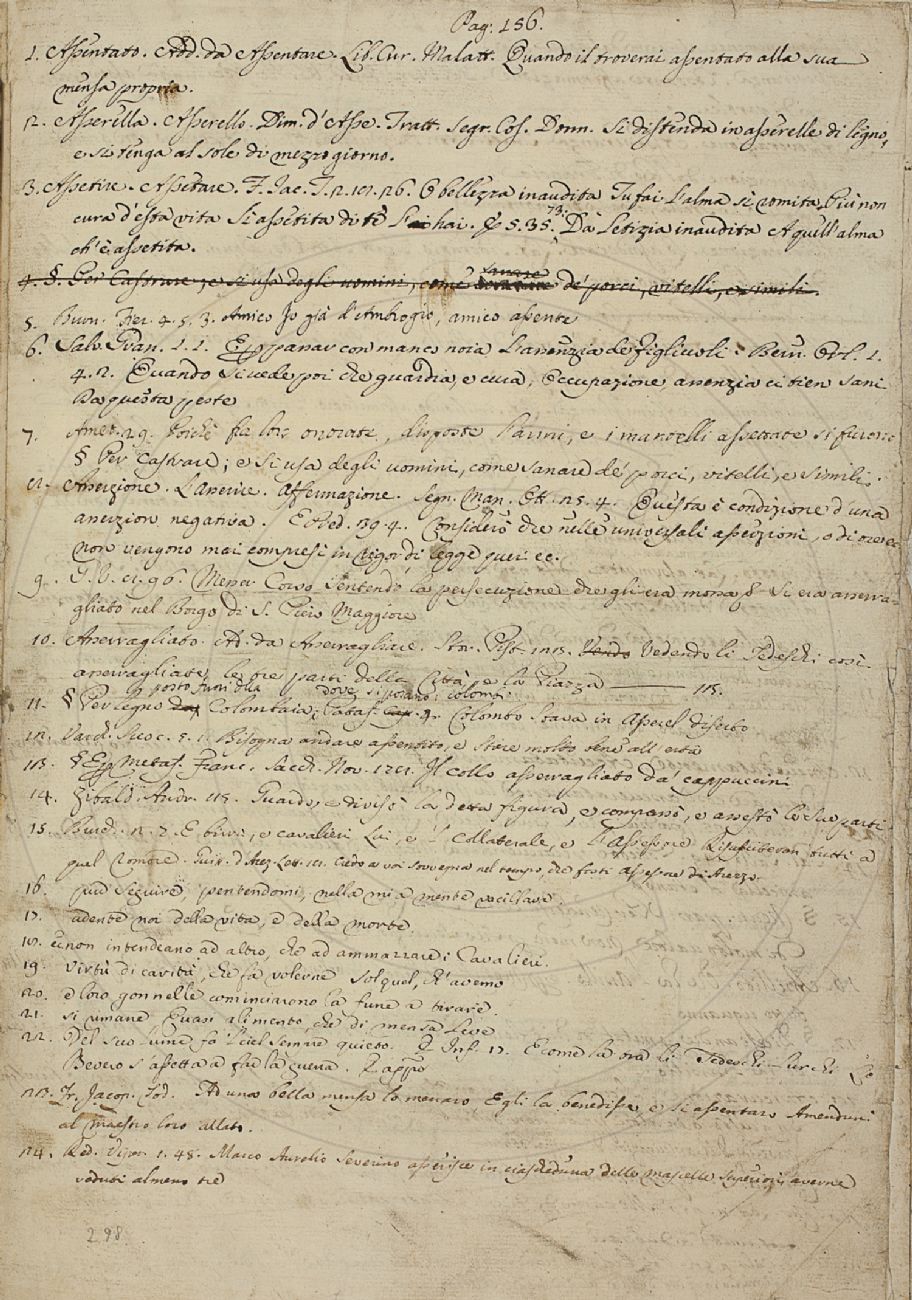 Pag. 156.
1. Assentato. Add. da Assentare. Lib. Cur. Malatt. Quando il troverai assentato alla sua
mensa propria.
2. Asserilla. Asserello. Dim. d'Asse. Tratt. segr. Cos. Donn. Si distenda in asserelle di legno,
e si tenga al sole di mezzo giorno.
3. Assetire. Assetare. F. Jac. T. 2. 101. 26. O bellezza inaudita Tu fai l'alma sì vomita, Più non
cura d'esta vita Si assetita di tè l'ai hai. E 5. 35. 73. Dà Letizia inaudita A quell'alma
ch'è assetita.
4. §. Per Castrare; e si usa degli uomini, come sanare de' porci, vitelli, e simili.
5. Buon. Fier. 4. 5. 3. Amico Io già d'Ambrogio, amico assente
6. Salv. Gran. 1. 1. E apparar con manco noia L'assenzia de figliuoli. Bern. Orl. 1.
4. 2. Quando si vede poi che guardia, e cura, Occupazione assenzia ci tien sani
Da questa peste
7. Amet. 29. Poichè fur loro onorate, disposte l'armi, e i mantelli assettate si furono
§ Per Castrare; e si usa degli uomini, come sanare de' porci, vitelli, e simili.
8. Asserzione. L'asserire. Affermazione. Segn. Man. Ott. 25. 4. Questa è condizione d'una
asserzion negativa. E Pred. 39. 4. Considerò che nelle universali asserzioni, o di onore
non vengono mai compresi in rigor di legge quei ec.
9. G. V. 8. 96. Messer Corso sentendo la persecuzione che gli era mossa Si era asserra-
gliato nel Borgo di S. Piero Maggiore
10. Asserragliato. Ad. da Asserragliare. Stor. Pist. 115. Vendo Vedendo li Tedeschi così
asserragliate le tre parti della Città, e la Piazza 115.
11. § Per legno posto fuori della Colombaia, dove si posano i colombi. Pataf. Cap. 9. Colombo stava in Asserel diserto
12. Varch. Suoc. 5. 1. Bisogna andare assentito, e stare molto bene all'erta
13. § E per metaf. Franc. Sacch. Nov. 121. Il collo asserragliato da' cappuccini
14. Zibald. Andr. 115. Guardò, e divisò la detta figura, e compassò, e assestò le sue parti
15. Burch. 2. 2. E birri, e cavalieri Lui, e 'l Collaterale, e l'Assessore Risusciteran tutti a
qual romore. Guitt. d'Arez. Lett. 18. Credo a voi sovvegna nel tempo, che fosti assessore di Arezzo.
16. può seguire, pentendomi, nella mia mente vacillare.
17. adente noi della vita, e della morte
18. e non intendeano ad altro, che ad ammazzare i Cavalieri.
19. Virtù di carità, che fa volerne sol quel, ch'avemo
20. e loro gonnelle cominciarono la fune a tirare.
21. si rimane, Quasi alimento, che di mensa leve
22. Del suo lume fa 'l ciel sempre quieto. E Inf. 17. E come là tra li Tedeschi lurchi Lo
Bevero s'assetta a far la guerra. E appo
23. Fr. Jacop. Tod. Ad una bella mensa lo menaro, Egli la benedisse, e si assentaro Amenduni
al Maestro loro allato.
24. Red. Vip. 1. 48. Marco Aurelio Severino asserisce in ciascheduna delle mascelle superiori averne
veduti almeno tre
298